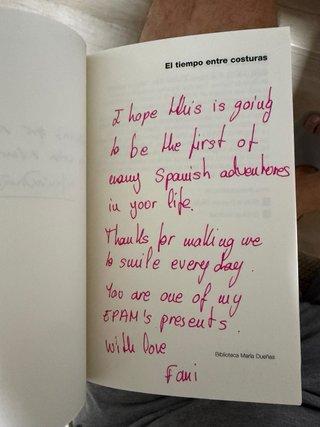 El tiempo entre costuras
I hope this is going
to be the first of
many Spanish adventures
in your life.
Thanks for making me
to smile every day.
You are one of my
EPAM's presents.
with love
Biblioteca María Dueñas
Fani